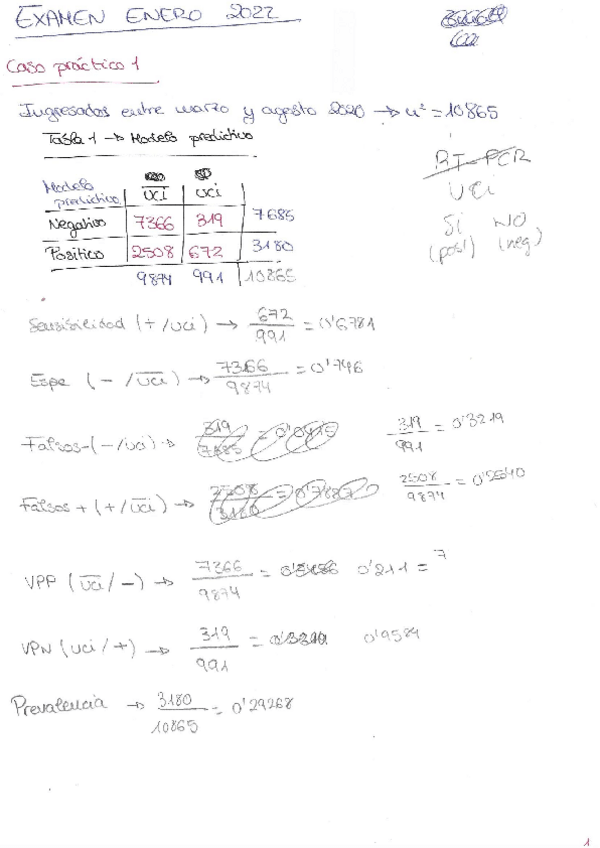 EXAMEN ENERO 2022
Caso práctico 1
Ingresados entre marzo y agosto 2020 → nº = 10865
Tabla 1 → Modelo predictivo
RT-PCR
UCI
Sí NO
(posi) (neg)
Modelo predictivo UCI UCI
Negativo 7366 319 7685
Positivo 2508 672 3180
9874 991 10865
Sensibilidad (+/UCI) → 672/991 = 0'6781
Espe (-/UCI) → 7366/9874 = 0'746
Falsos - (-/UCI) → 319/7685 = 319/991 = 0'3219
Falsos + (+/UCI) → 2508/3180 = 2508/9874 = 0'2540
VPP (UCI/-) → 7366/9874 = 0'211 = 7
VPN (UCI/+) → 319/991 = 0'9584
Prevalencia → 3180/10865 = 0'29268
1